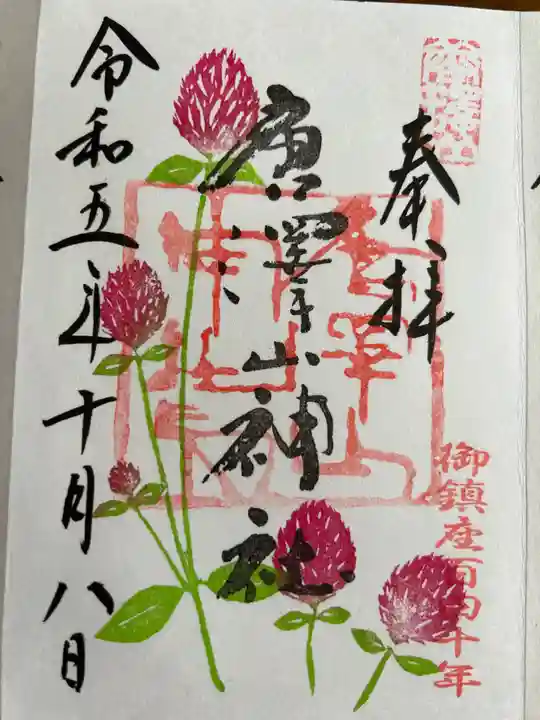 奉拝
御鎮座百四十年
唐澤山神社
令和五年十月八日